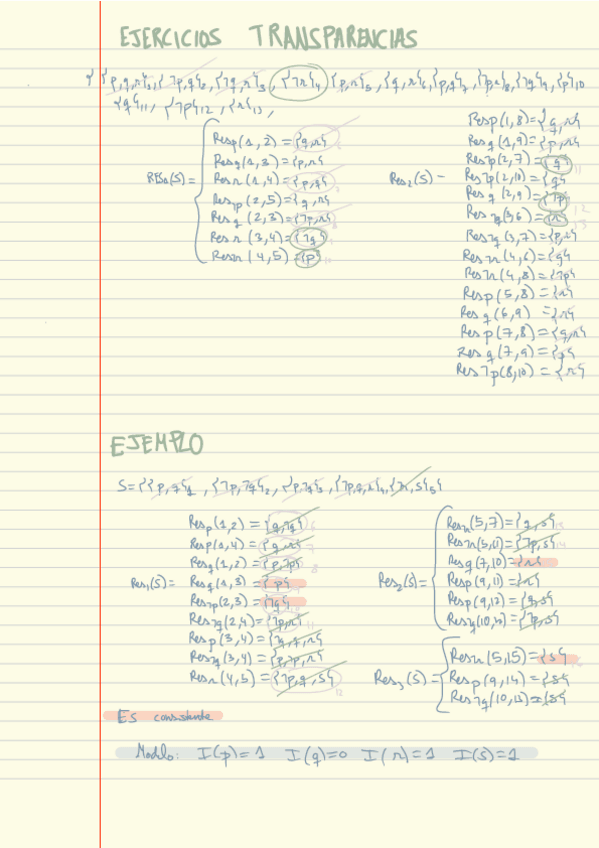 EJERCICIOS TRANSPARENCIAS
{ {p,q,r}1, {¬p,q}2, {¬q,r}3, {¬r}4 {p,r}5, {q,r}6, {p,q}7, {¬p}8, {¬q}9, {p}10
{q}11, {¬p}12, {r}13,
Res1(S) =
Resp(1,2) = {q,r}
Resq(1,3) = {p,r}
Resr(1,4) = {p,q}
Resp(2,5) = {q,r}
Resq(2,3) = {¬p,r}
Resr(3,4) = {¬q}
Resr(4,5) = {p}
Res2(S) =
Resp(1,8) = {q,r}
Resq(1,9) = {p,r}
Resp(2,7) = {q} 11
Res¬p(2,10) = {q}
Resq(2,9) = {¬p} 12
Res¬q(3,6) = {r} 13
Res¬q(3,7) = {p,r}
Res¬r(4,6) = {q}
Res¬r(4,8) = {¬p}
Resp(5,8) = {r}
Resq(6,9) = {r}
Resp(7,8) = {q,r}
Resq(7,9) = {p}
Res¬p(8,10) = {r}
EJEMPLO
S={{p,q}1, {¬p,¬q}2, {p,¬q}3, {¬p,q,r}4, {¬r,s}5
Res1(S) =
Resp(1,2) = {q,¬q} 6
Resp(1,4) = {q,r} 7
Resq(1,2) = {p,¬p} 8
Resq(1,3) = {p}
Res¬p(2,3) = {¬q}
Res¬q(2,4) = {¬p,r} 11
Resp(3,4) = {¬q,q,r}
Res¬q(3,4) = {p,¬p,r}
Resr(4,5) = {¬p,q,s} 12
Res2(S) =
Res¬r(5,7) = {q,s} 13
Res¬r(5,11) = {¬p,s} 14
Resq(7,10) = {r}
Resp(9,11) = {r}
Resp(9,12) = {q,s}
Res3(S) =
Res¬r(5,15) = {s}
Resp(9,14) = {s}
Res¬q(10,13) = {s}
Es consistente
Modelo: I(p)=1 I(q)=0 I(r)=1 I(s)=1